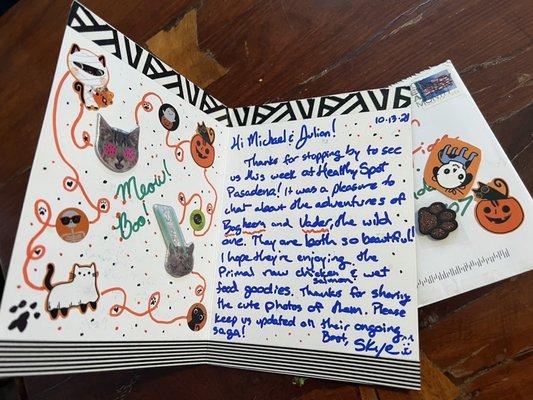 Meow!
Boo!
10.13.21
Hi Michael & Julian!
Thanks for stopping by to see
us this week at Healthy Spot
Pasadena! It was a pleasure to
chat about the adventures of
Bagheera and Vader, the wild
one. They are both so beautiful!
I hope they're enjoying the
Primal raw chicken & wet
salmon
food goodies. Thanks for sharing
the cute photos of them. Please
keep us updated on their ongoing
saga!
Best,
Skye